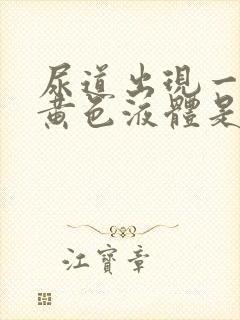 尿道出現一
黃色液體是
江寶章